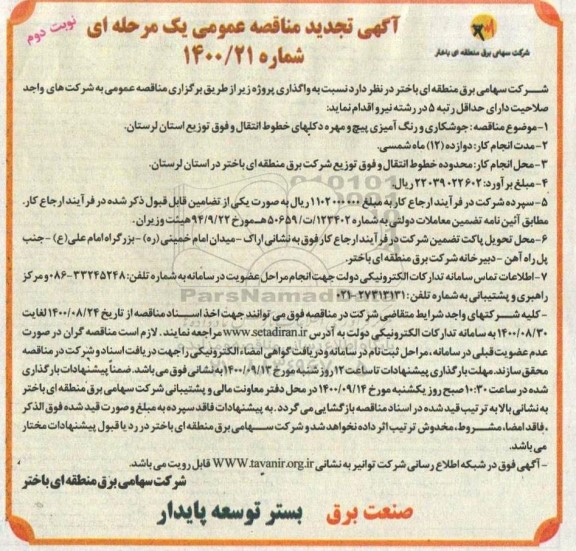 نوبت دوم
آگهی تجدید مناقصه عمومی یک مرحله ای
شماره ۱۴۰۰/۲۱
شرکت سهامی برق منطقه ای باختر
شرکت سهامی برق منطقه ای باختر در نظر دارد نسبت به واگذاری پروژه زیر از طریق برگزاری مناقصه عمومی به شرکت های واجد
صلاحیت دارای حداقل رتبه ۵ در رشته نیرو اقدام نماید:
۱-موضوع مناقصه: جوشکاری و رنگ آمیزی پیچ و مهره دکلهای خطوط انتقال و فوق توزیع استان لرستان.
۲-مدت انجام کار: دوازده (۱۲) ماه شمسی.
۳- محل انجام کار: محدوده خطوط انتقال و فوق توزیع شرکت برق منطقه ای باختر در استان لرستان.
۴-مبلغ برآورد: ۲۲۰۳۹۰۲۲۶۰۲ ریال.
۵- سپرده شرکت در فرآیند ارجاع کار به مبلغ ۱۱۰۲۰۰۰۰۰۰ ریال به صورت یکی از تضامین قابل قبول ذکر شده در فرآیند ارجاع کار.
مطابق آئین نامه تضمین معاملات دولتی به شماره ۱۲۳۴۰۲/ت/۵۰۶۵۹هـ مورخ ۹۴/۹/۲۲ هیئت وزیران.
۶-محل تحویل پاکت تضمین شرکت در فرآیند ارجاع کار فوق به نشانی اراک - میدان امام خمینی (ره) -بزرگراه امام علی(ع) -جنب
پل راه آهن - دبیرخانه شرکت برق منطقه ای باختر.
۷-اطلاعات تماس سامانه تدارکات الکترونیکی دولت جهت انجام مراحل عضویت در سامانه به شماره تلفن: ۳۳۲۴۵۲۴۸-۰۸۶ و مرکز
راهبری و پشتیبانی به شماره تلفن: ۲۷۳۱۳۱۳۱-۰۲۱
- کلیه شرکتهای واجد شرایط متقاضی شرکت در مناقصه فوق می توانند جهت اخذ اسناد مناقصه از تاریخ ۱۴۰۰/۰۸/۲۴ لغایت
۱۴۰۰/۰۸/۳۰ به سامانه تدارکات الکترونیکی دولت به آدرس www.setadiran.ir مراجعه نمایند. لازم است مناقصه گران در صورت
عدم عضویت قبلی در سامانه، مراحل ثبت نام در سامانه و دریافت گواهی امضاء الکترونیکی را جهت دریافت اسناد و شرکت در مناقصه
محقق سازند. مهلت بارگذاری پیشنهادات تا ساعت ۱۲ روز شنبه مورخ ۱۴۰۰/۰۹/۱۳ به نشانی فوق می باشد. ضمناً پیشنهادات بارگذاری
شده در ساعت ۱۰:۳۰ صبح روز یکشنبه مورخ ۱۴۰۰/۰۹/۱۴ در محل دفتر معاونت مالی و پشتیبانی شرکت سهامی برق منطقه ای باختر
به نشانی بالا به ترتیب قید شده در اسناد مناقصه بازگشایی می گردد. به پیشنهادات فاقد سپرده به مبلغ و صورت قید شده فوق الذکر
، فاقد امضا، مشروط، مخدوش ترتیب اثر داده نخواهد شد و شرکت سهامی برق منطقه ای باختر در رد یا قبول پیشنهادات مختار
می باشد.
- آگهی فوق در شبکه اطلاع رسانی شرکت توانیر به نشانی WWW.tavanir.org.ir قابل رویت می باشد.
شرکت سهامی برق منطقه ای باختر
صنعت برق بستر توسعه پایدار